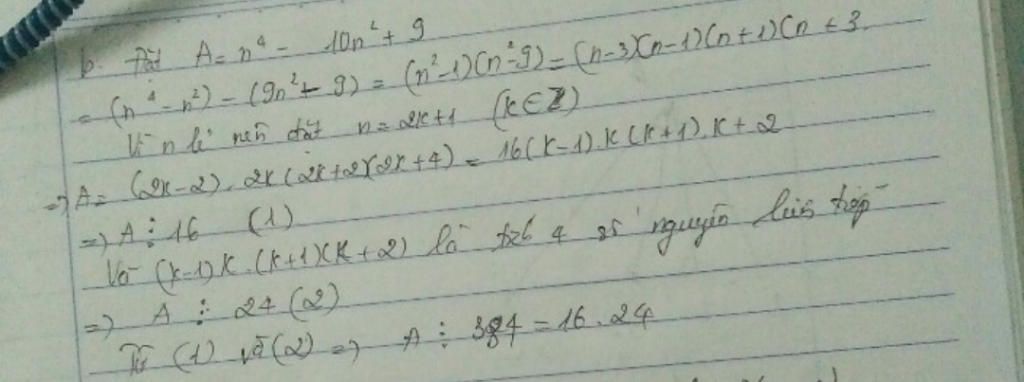 b. Đặt A = n⁴ - 10n² + 9
= (n⁴ - n²) - (9n² + 9) = (n² - 1)(n² - 9) = (n-3)(n-1)(n+1)(n+3
Vì n lẻ nên đặt n = 2k+1 (k ∈ Z)
=> A = (2k-2).2k(2k+2)(2k+4) = 16(k-1).k(k+1).k+2
=> A ⋮ 16 (1)
Và (k-1)k.(k+1)(k+2) là tích 4 số nguyên liên tiếp
=> A ⋮ 24 (2)
Từ (1) và (2) => A ⋮ 384 = 16.24